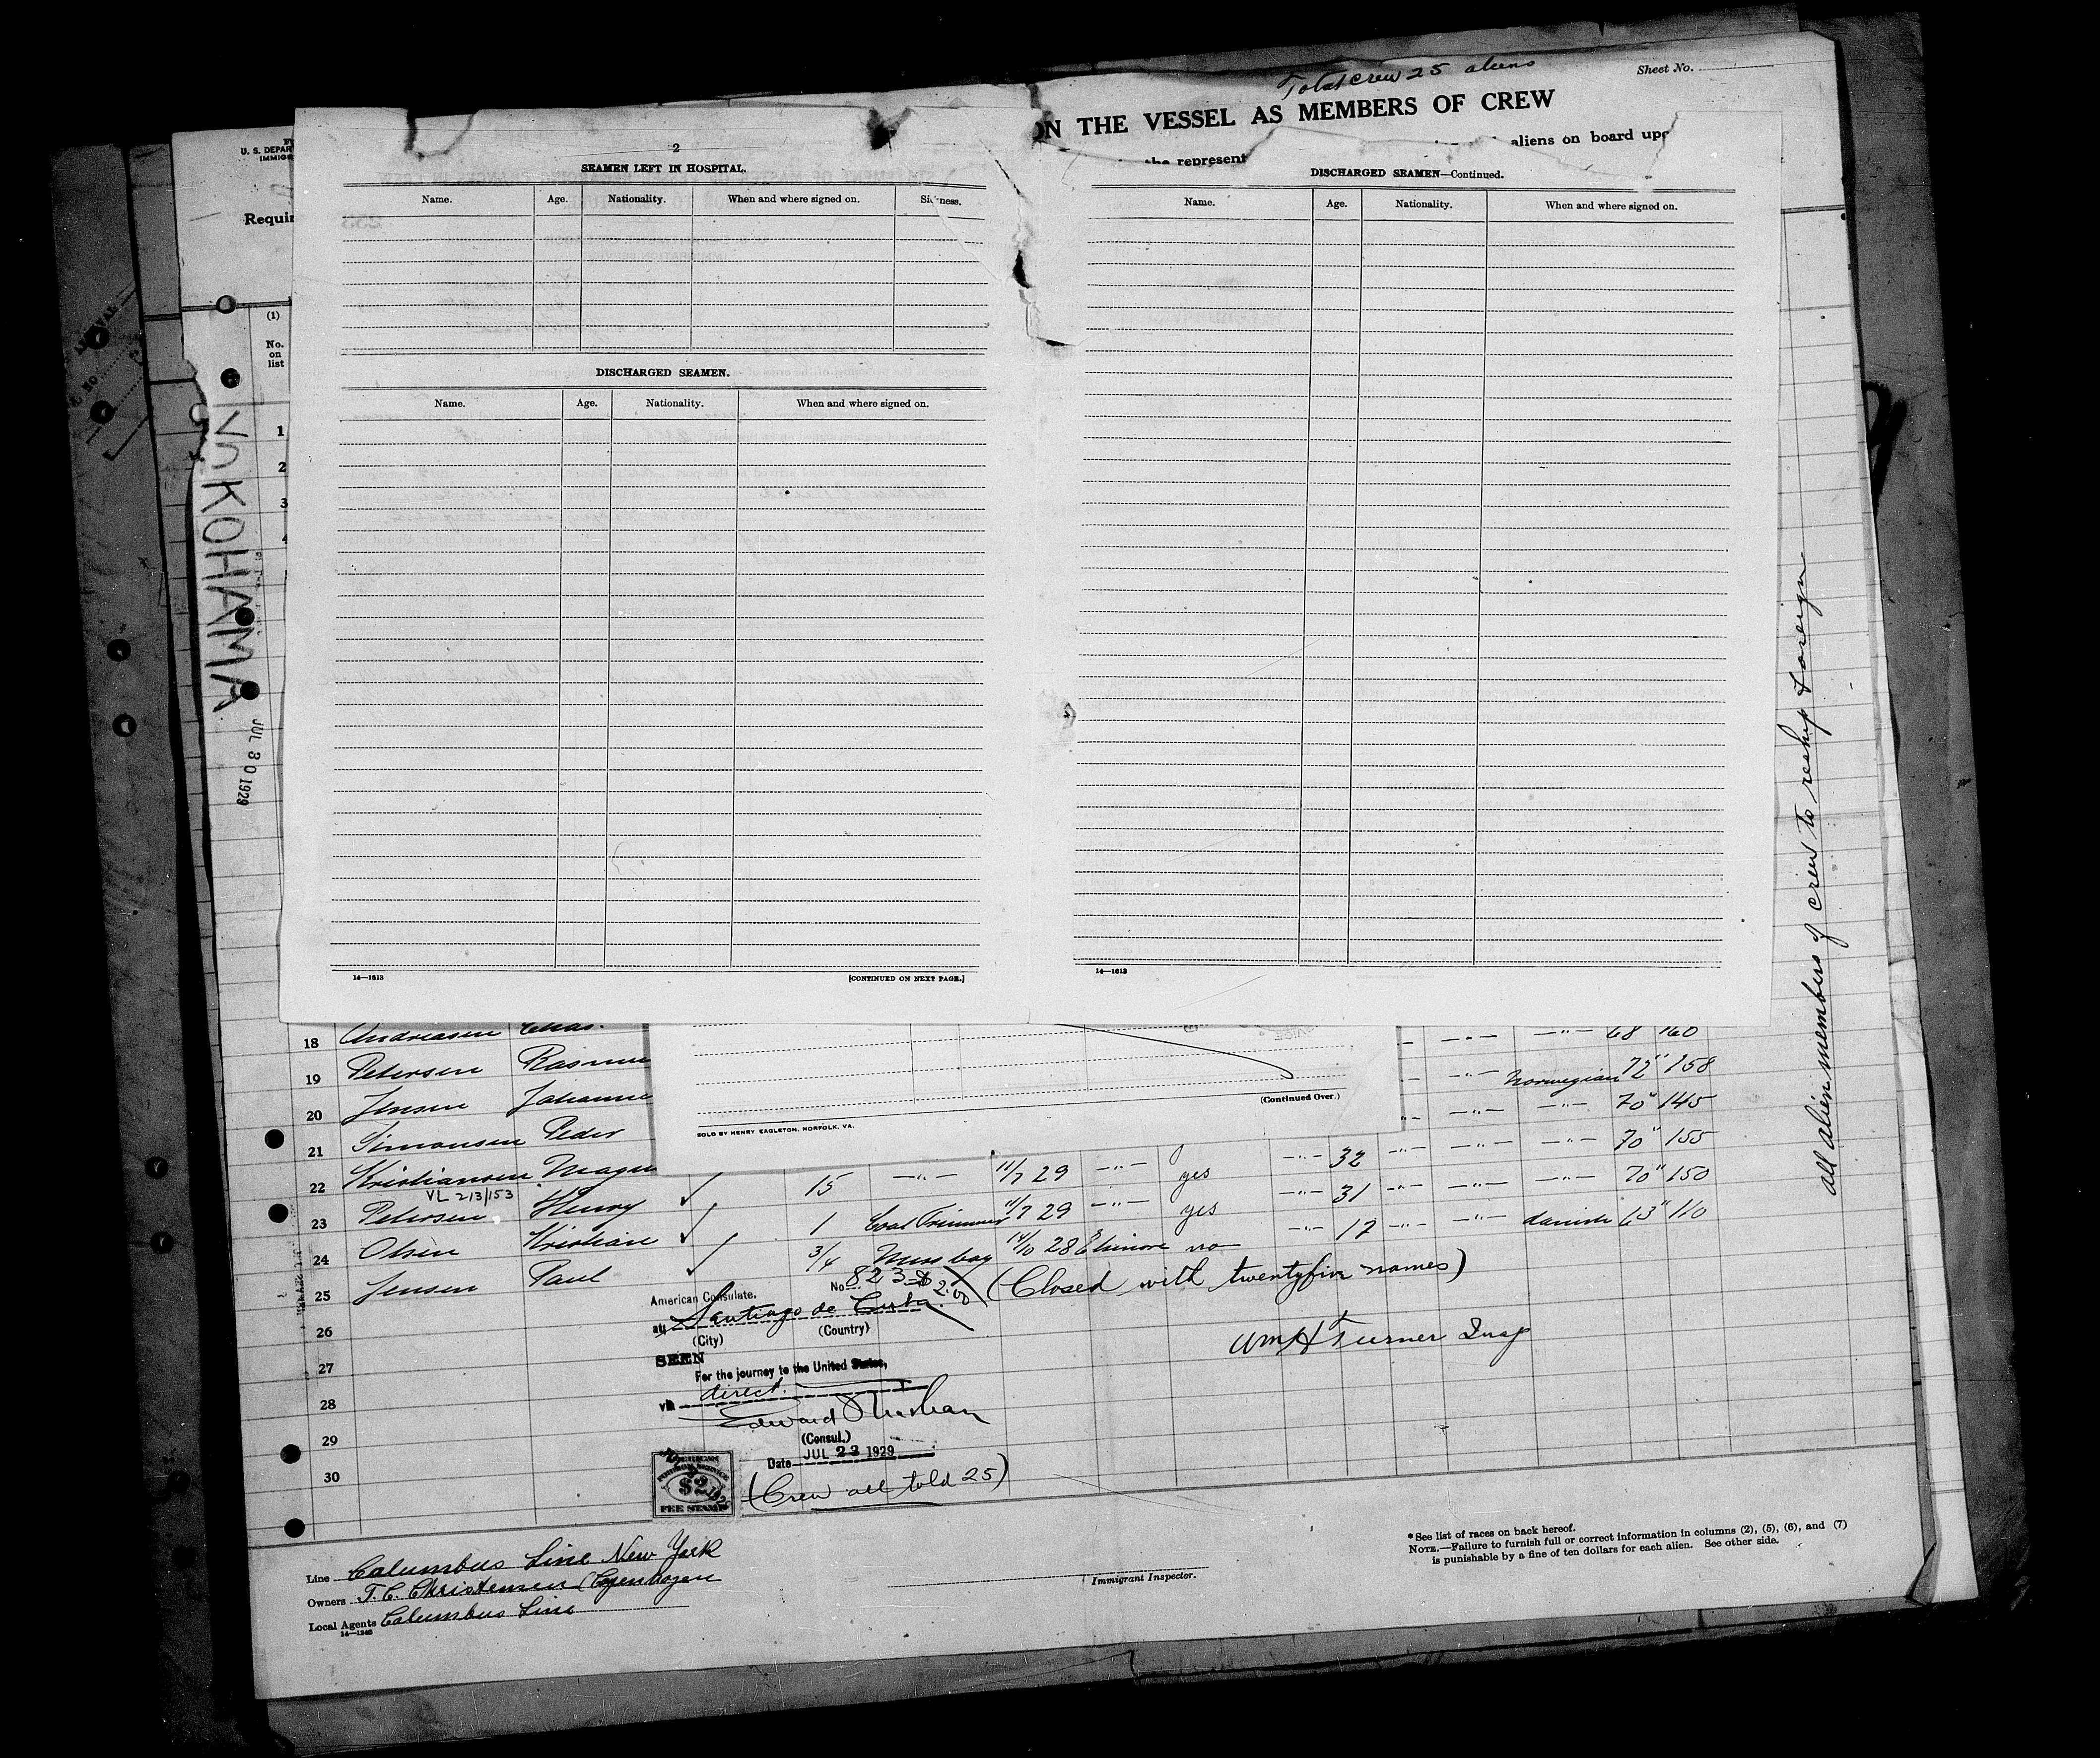 Total crew 25 aliens
Sheet No.
ON THE VESSEL AS MEMBERS OF CREW
aliens on board upo
the represent
U. S. DEPAR
IMMIGR
Requir
(1)
No.
on
list
1
2
3
4
YOKOHAMA
JUL 30 1929
2
SEAMEN LEFT IN HOSPITAL.
Name. Age. Nationality. When and where signed on. Sickness.
DISCHARGED SEAMEN.
Name. Age. Nationality. When and where signed on.
14—1613 [CONTINUED ON NEXT PAGE.]
DISCHARGED SEAMEN—Continued.
Name. Age. Nationality. When and where signed on.
14—1613
all alien members of crew to reship foreign
18 Andreasen Chas. —"— —"— 68 160
19 Petersen Rasmu —"— Norwegian 72" 158
20 Jensen Johanne —"— —"— 70" 145
21 Simonsen Peder —"— 32 —"— —"— —"— 70" 155
22 Kristiansen Magn ✓ 15 —"— 11/7 29 —"— yes —"— 31 —"— —"— —"— 70" 150
VL 213/153
23 Petersen Henry ✓ 1 Coal Trimmer 11/7 29 —"— yes —"— 17 —"— —"— danish 63" 110
24 Olsen Kristian ✓ 3/4 Mess boy 14/10 28 Elsinore no
25 Jensen Paul
26
27
28
29
30
(Continued Over.)
SOLD BY HENRY EAGLETON, NORFOLK, VA.
No 823 $2.00
(Closed with twentyfive names)
Wm H Turner Insp
American Consulate.
at Santiago de Cuba.
(City) (Country)
SEEN
For the journey to the United States,
via direct.
Edward
(Consul.)
Date JUL 23 1929
(Crew all told 25)
AMERICAN
FOREIGN SERVICE
$2
FEE STAMP
Line Columbus Line New York
Owners T. C. Christensen Copenhagen
Local Agents Columbus Line
14—1240
Immigrant Inspector.
* See list of races on back hereof.
NOTE.—Failure to furnish full or correct information in columns (2), (5), (6), and (7)
is punishable by a fine of ten dollars for each alien. See other side.